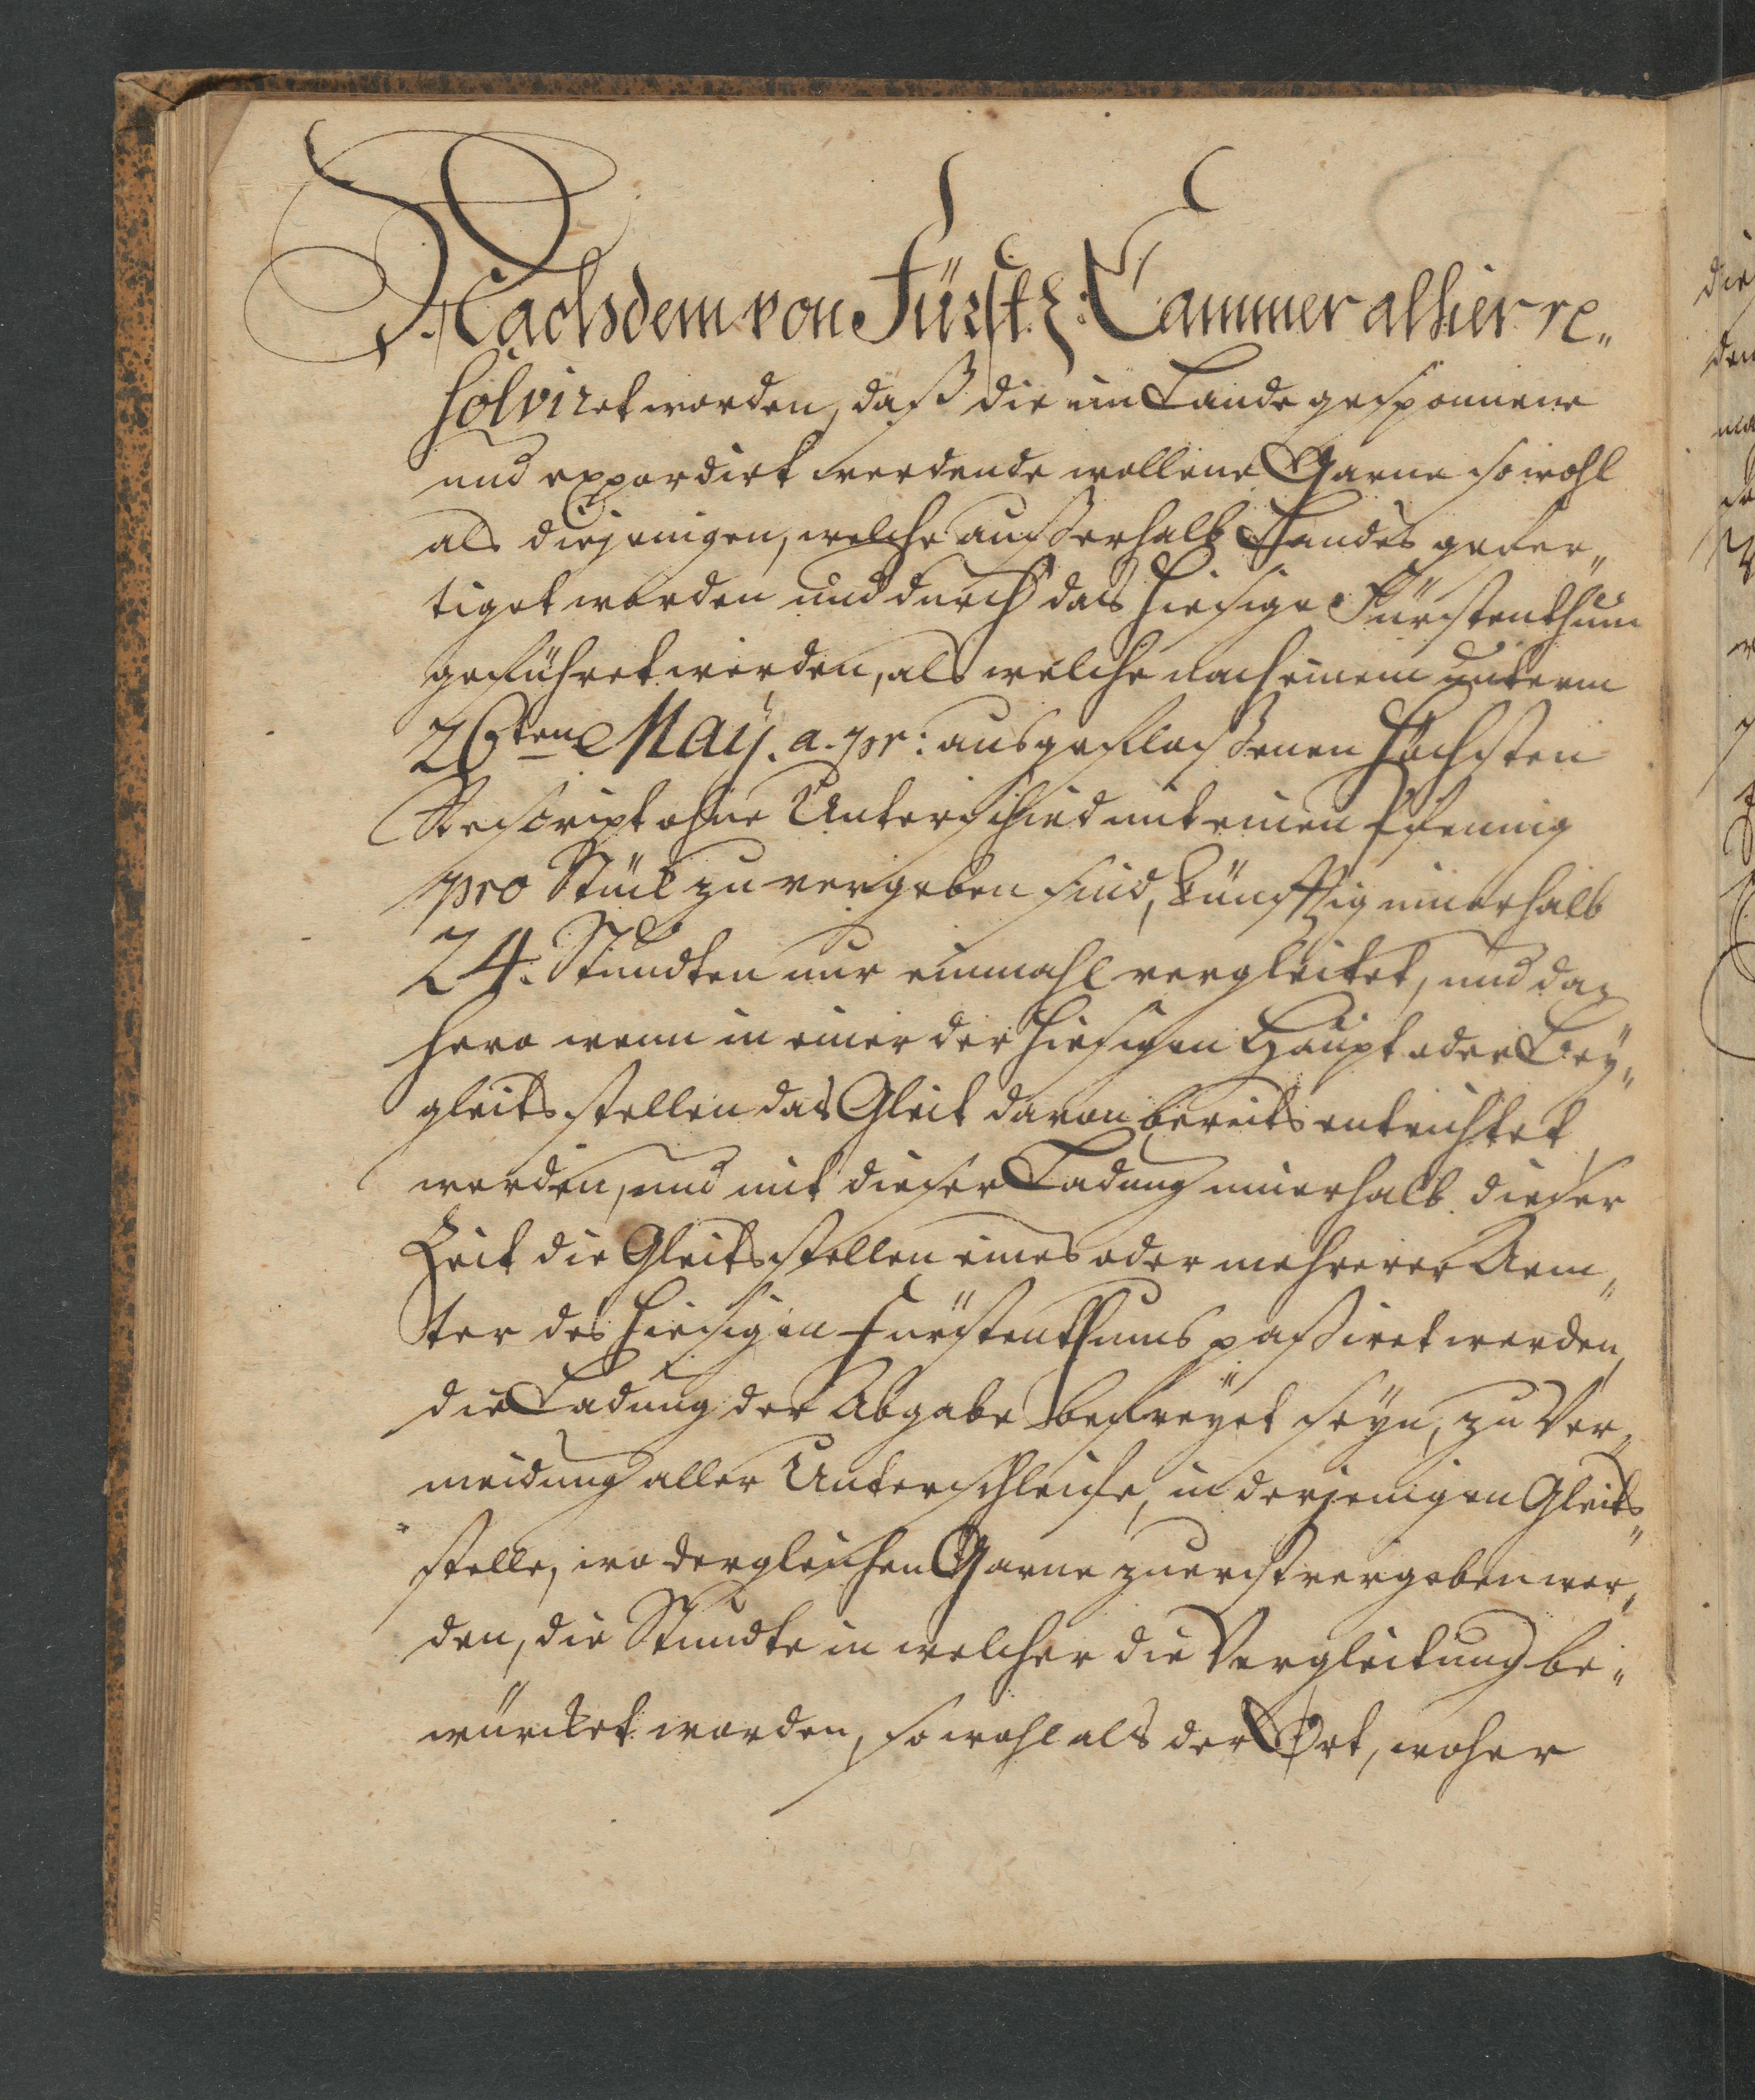 Nachdem von Fürstl: Cammer alhier re„
solviret worden, daß die im Lande gesponnene
und expordirt werdende wollene Garne sowohl
als diejenigen, welche außerhalb Landes gefer„
tiget worden und durch das hiesige Fürstenthum
geführet werden, als welche nach einem unterm
26ten May. a. pr: ausgefloßenen höchsten
Rescript ohne Unterschied mit einen Pfennig
pro Stück zu vergeben sind, künfftig innerhalb
24. Stundten nur einmahl vergleitet, und da„
hero wenn in einer der hiesigen Haupt oder Bey„
gleits stellen das Gleit davon bereits entrichtet
worden, und mit dieser Ladung innerhalb dieser
Zeit die Gleitsstellen eines oder mehrerer Aem„
ter des hiesigen Fürstenthums passiret werden,
die Ladung der Abgabe befreyet seyn, zu Ver„
meidung aller Unterschleife, in derjenigen Gleits„
stelle, wo dergleichen Garne zuerst vergeben wer„
den, die Stundte in welcher die Vergleitung be„
würcket worden, sowohl als der Ort, woher